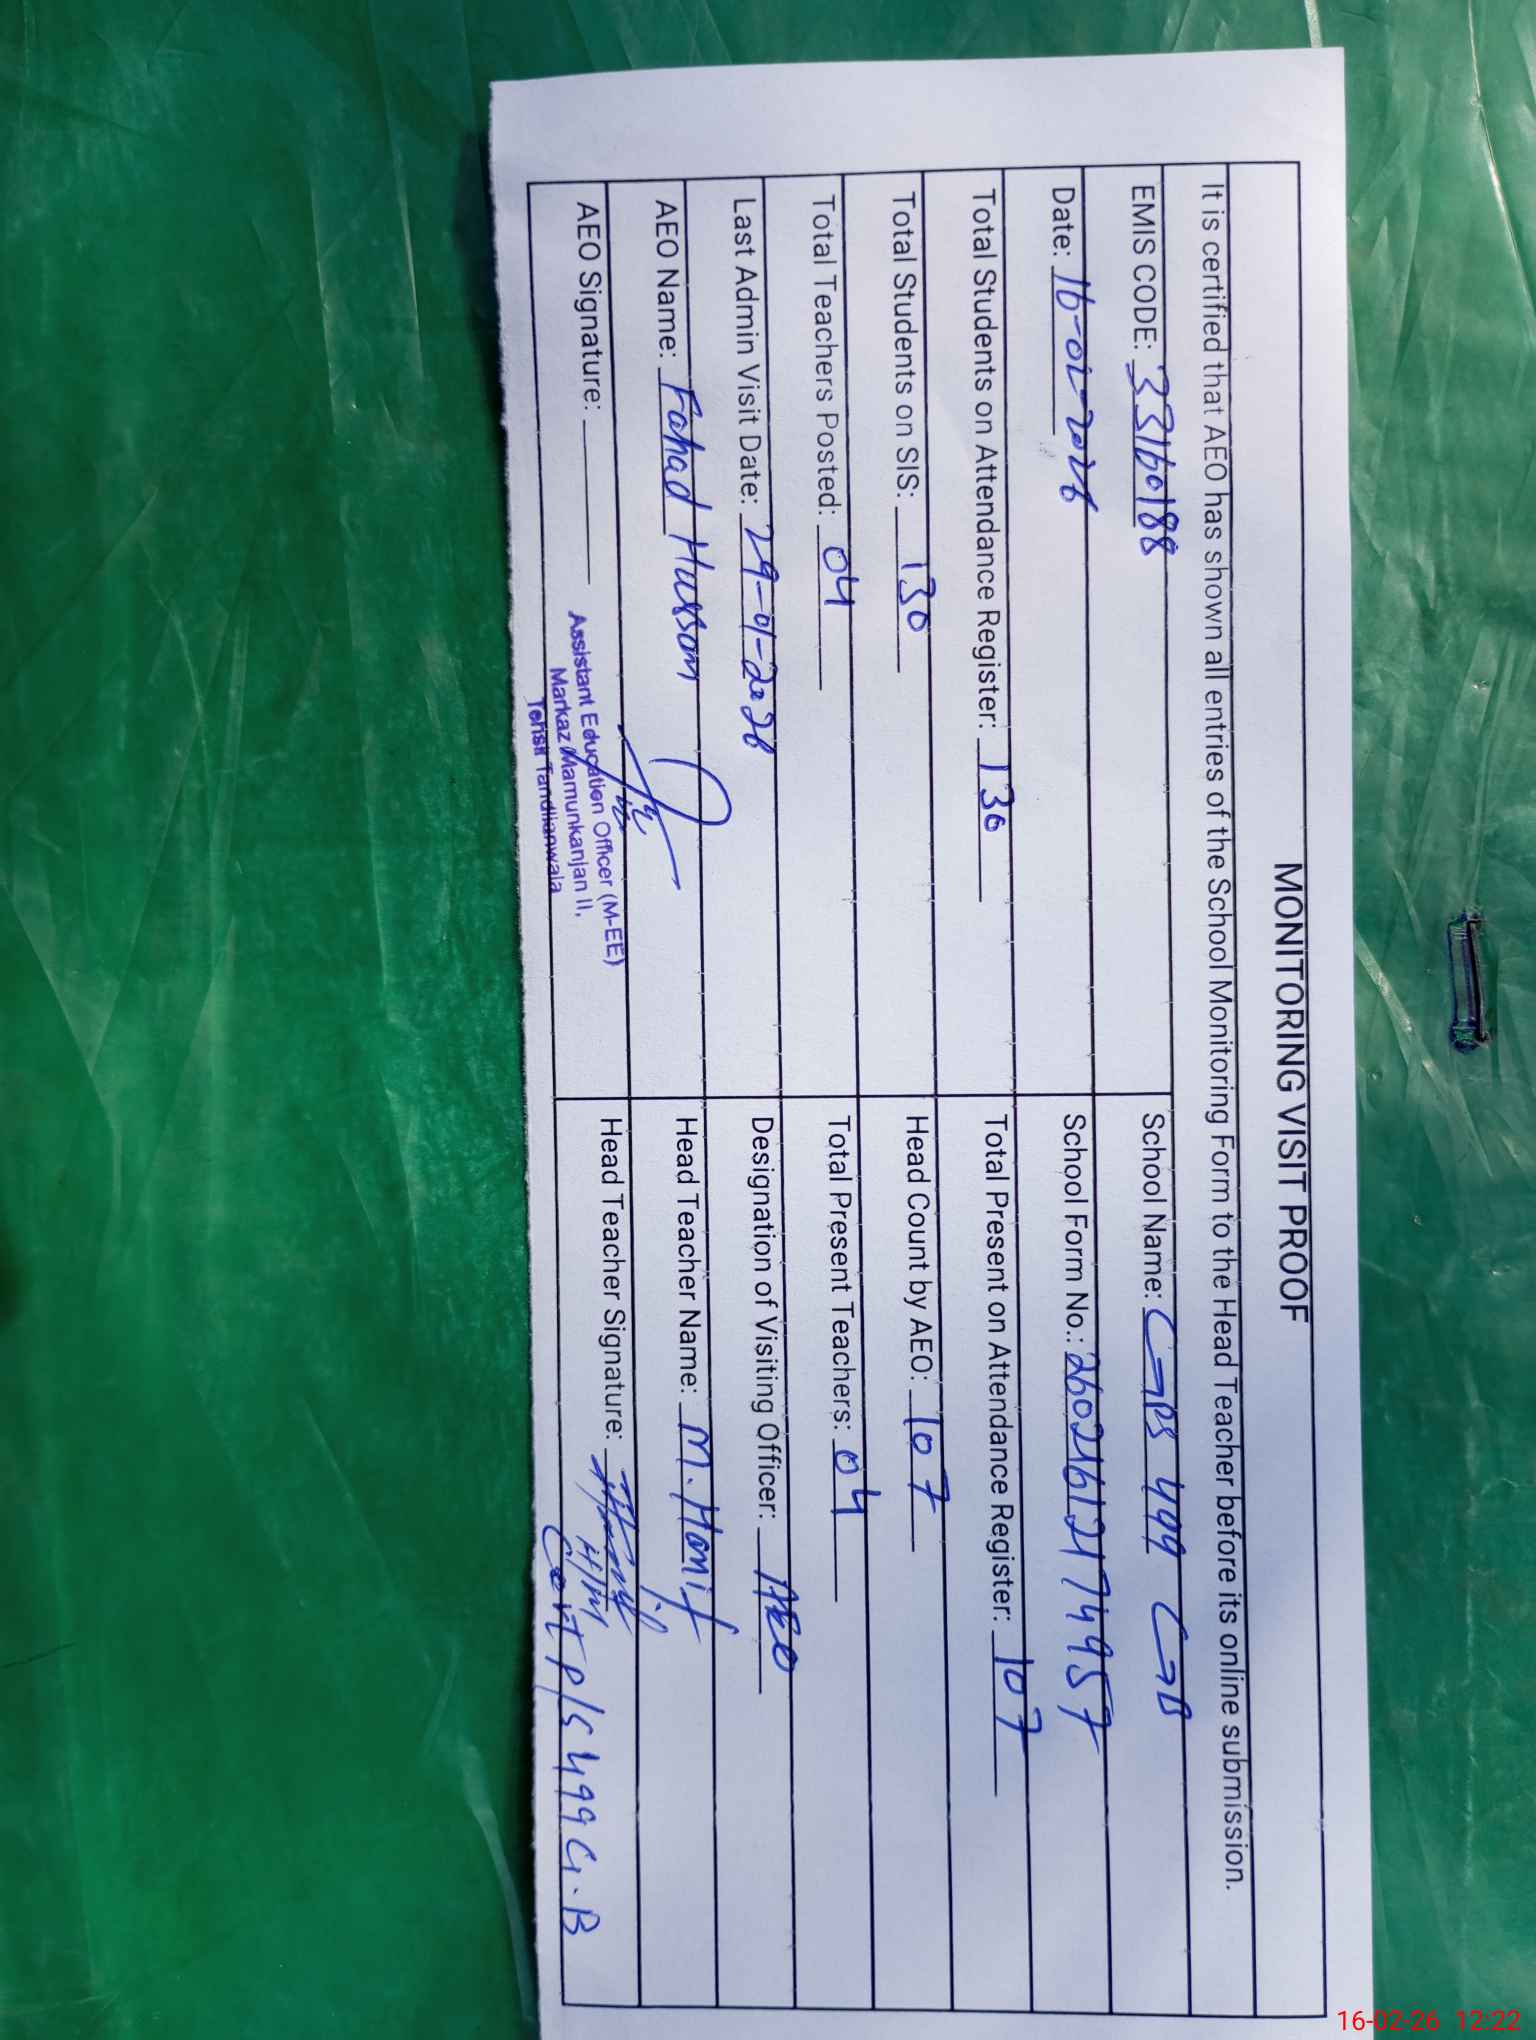 MONITORING VISIT PROOF
It is certified that AEO has shown all entries of the School Monitoring Form to the Head Teacher before its online submission.
EMIS CODE: 33160188
School Name: GPS 499 GB
Date: 16-02-2026
School Form No.: 26021612174957
Total Students on Attendance Register: 130
Total Present on Attendance Register: 107
Total Students on SIS: 130
Head Count by AEO: 107
Total Teachers Posted: 04
Total Present Teachers: 04
Last Admin Visit Date: 29-01-2026
Designation of Visiting Officer: AEO
AEO Name: Fahad Hussan
Head Teacher Name: M. Hanif
AEO Signature:
Head Teacher Signature:
H/M
Assistant Education Officer (M-EE)
Markaz Mamunkanjan II,
Tehsil Tandlianwala
Govt P/S 499 G.B
16-02-26 12:22